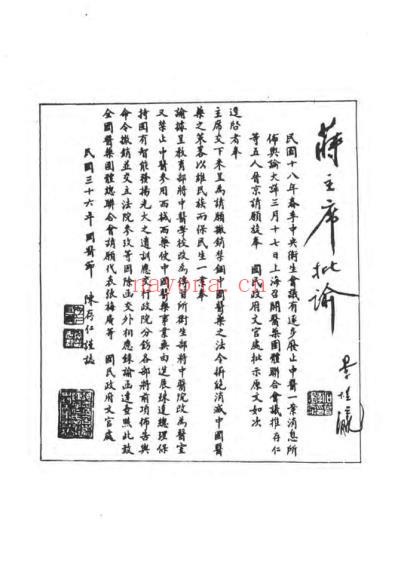 蔣主席批諭
民國十八年春季中央衛生會議有逐步廢止中醫一案消息所
佈輿論大譁三月十七日上海召開醫藥團體聯合會議推存仁
等五人晉京請願旋奉 國民政府文官處批示原文如次
逕啓者奉
主席交下來呈為請願撤銷禁錮中國醫藥之法令摒絕消滅中國醫
藥之策畧以維民族而保民生一案奉
諭據呈教育部將中醫學校改為傳習所衛生部將中醫院改為醫室
又禁止中醫參用西械西藥使中國醫藥事業無由進展殊違總理保
持固有智能發揚光大之遺訓應交行政院分飭各部將前項佈告與
命令撤銷並交立法院參攷等因除函交外相應錄諭函達查照此致
全國醫藥團體總聯合會請願代表張梅庵等 國民政府文官處
民國三十六年國醫節 陳存仁謹誌
nayona.cn